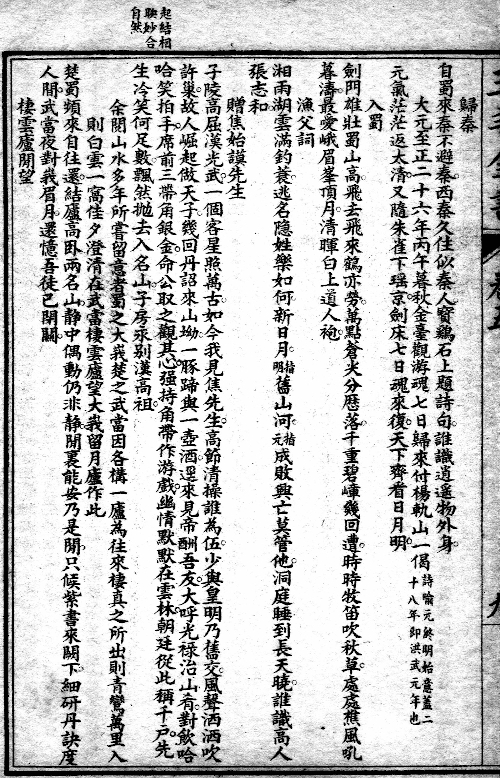 起結相
聯妙合
自然
歸秦
自蜀來秦不避秦西秦久住似秦人寶鷄石上題詩句誰識逍遙物外身
大元至正二十六年丙午暮秋金臺觀游魂七日歸來付楊軌山一偈詩喻元終明始意蓋二十八年即洪武元年也
元氣茫茫返太清又隨朱雀下瑶京劍床七日魂來復天下齊看日月明
入蜀
劍門雄壯蜀山高飛去飛來鶴亦勞萬點蒼尖分歷落千重碧嶂幾回遭時時牧笛吹秋草處處樵風吼
暮濤最愛峨眉峯頂月清暉白上道人袍
漁父詞
湘雨湖雲滿釣蓑逃名隐姓樂如何新日月指明舊山河指元成敗興亡莫管他洞庭睡到長天曉誰識高人
張志和
贈焦始謨先生
子陵高屈漢光武一個客星照萬古如今我見焦先生高節清操誰為伍少與皇明乃舊交風聲洒洒吹
許巢故人崛起做天子幾回丹詔來山坳一豚蹄與一壺酒還來見帝酬吾友大呼光禄治山肴對飲哈
哈笑拍手席前三帶角銀金命公取之觀其心强持角帶作游戲幽情默默在雲林朝廷從此稱千戶先
生冷笑何足數飄然拋去入名山子房永别漢高祖
余閱山水多年所嘗留意者蜀之大峩楚之武當因各構一廬為往來棲真之所出則青鸞萬里入
則白雲一窩佳夕澄清在武當棲雲廬望大峩留月廬作此
楚蜀頻來自往還結廬高卧兩名山静中偶動仍非静閒裏能安乃是閒只候紫書來闕下細研丹訣度
人間武當夜對峩眉月還憶吾徒已閉關
棲雲廬閒望